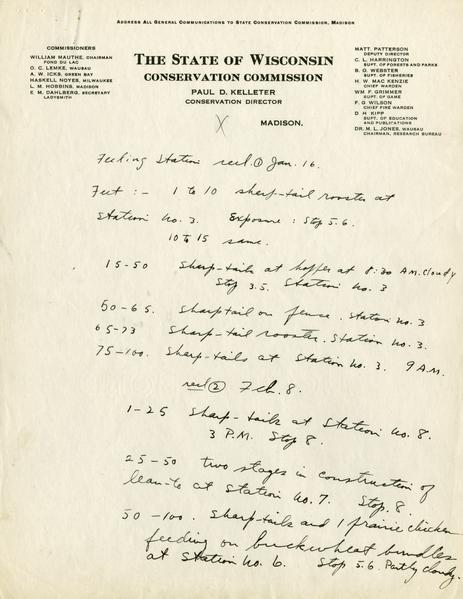 ADDRESS ALL GENERAL COMMUNICATIONS TO STATE CONSERVATION COMMISSION, MADISON
COMMISSIONERS
WILLIAM MAUTHE, CHAIRMAN
FOND DU LAC
O. C. LEMKE, WAUSAU
A. W. ICKS, GREEN BAY
HASKELL NOYES, MILWAUKEE
L. M. HOBBINS, MADISON
E. M. DAHLBERG, SECRETARY
LADYSMITH
THE STATE OF WISCONSIN
CONSERVATION COMMISSION
PAUL D. KELLETER
CONSERVATION DIRECTOR
X
MADISON.
MATT. PATTERSON
DEPUTY DIRECTOR
C. L. HARRINGTON
SUPT. OF FORESTS AND PARKS
B. O. WEBSTER
SUPT. OF FISHERIES
H. W. MAC KENZIE
CHIEF WARDEN
WM. F. GRIMMER
SUPT. OF GAME
F. G. WILSON
CHIEF FIRE WARDEN
D. H. KIPP
SUPT. OF EDUCATION
AND PUBLICATIONS
DR. M. L. JONES, WAUSAU
CHAIRMAN, RESEARCH BUREAU
Feeding Station reel ① Jan. 16.
Feet :- 1 to 10 sharp-tail rooster at
Station no. 3. Exposure : Stop 5.6.
10 to 15 same.
15-50 Sharp-tails at hopper at 8:30 A.M. cloudy
Stop 3.5. Station no. 3
50-65. Sharptail on fence. Station no. 3
65-73 Sharp-tail rooster. Station no. 3.
75-100. Sharp-tails at Station no. 3. 9 A.M.
reel ② Feb. 8.
1-25 Sharp-tails at Station no. 8.
3 P.M. Stop 8.
25-50 two stages in construction of
lean-to at Station no. 7. Stop. 8.
50-100. Sharptails and 1 prairie chicken
feeding on buckwheat bundles
at Station no. 6. Stop 5.6 Partly cloudy.